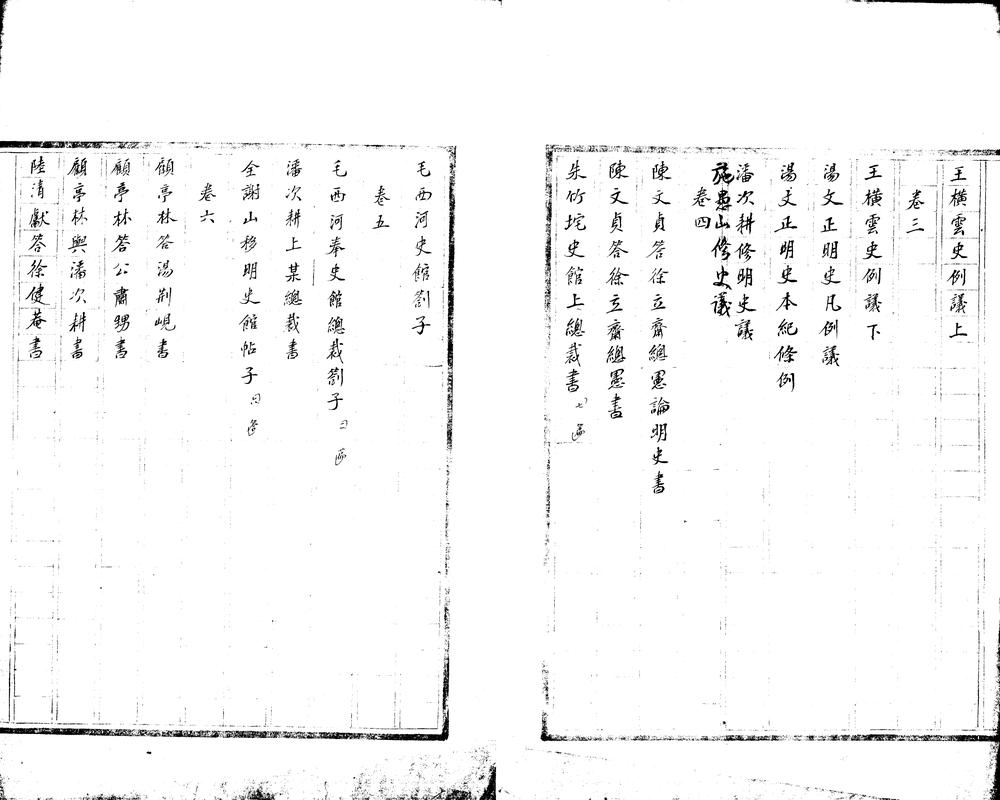 王橫雲史例議上
卷三
王橫雲史例議下
湯文正明史凡例議
湯文正明史本紀條例
潘次耕修明史議
施愚山修史議
卷四
陳文貞答徐立齋總憲論明史書
陳文貞答徐立齋總憲書
朱竹垞史館上總裁書七函
毛西河史館劄子
卷五
毛西河奉史館總裁劄子二函
潘次耕上某總裁書
全謝山移明史館帖子
卷六
顧亭林答湯荆峴書
顧亭林答公肅甥書
顧亭林與潘次耕書
陸清獻答徐健菴書